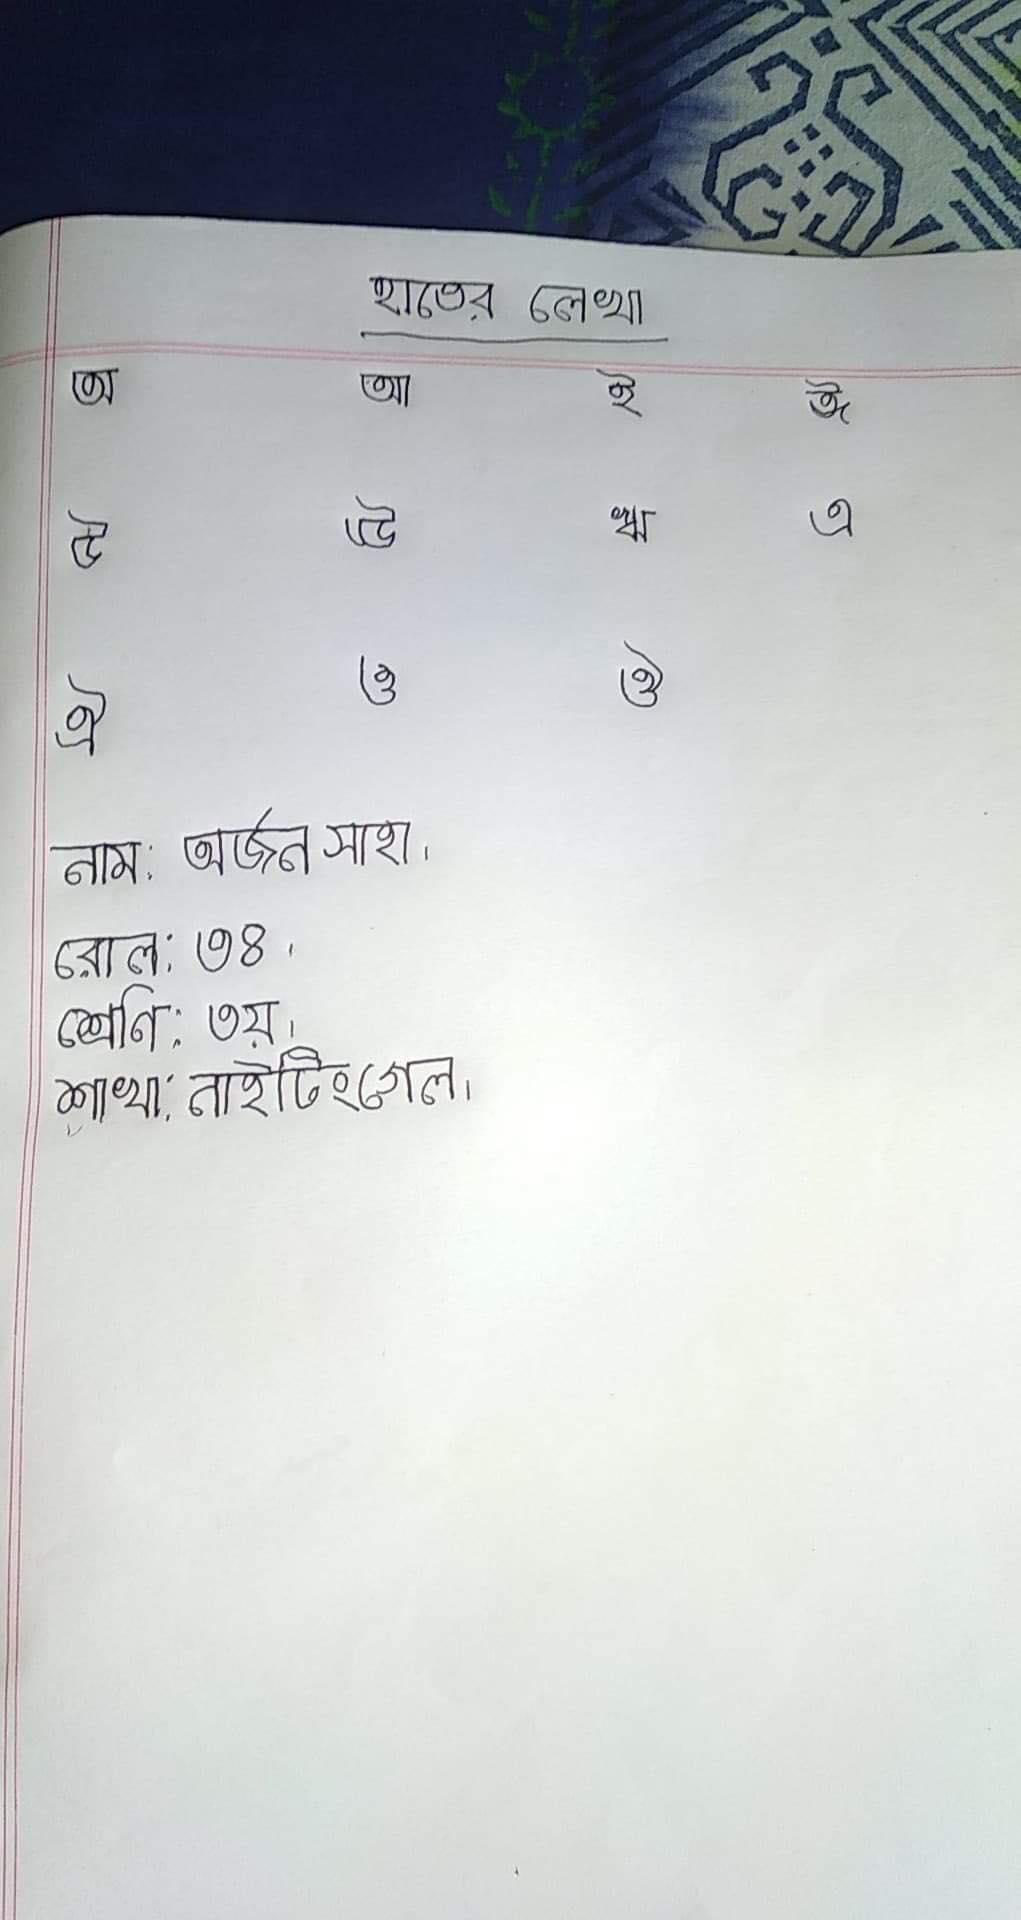 হাতের লেখা
অ আ ই ঈ
উ ঊ ঋ এ
ঐ ও ঔ
নাম: অর্জন সাহা।
রোল: ৩৪।
শ্রেণি: ৩য়।
শাখা: নাইটিংগেল।